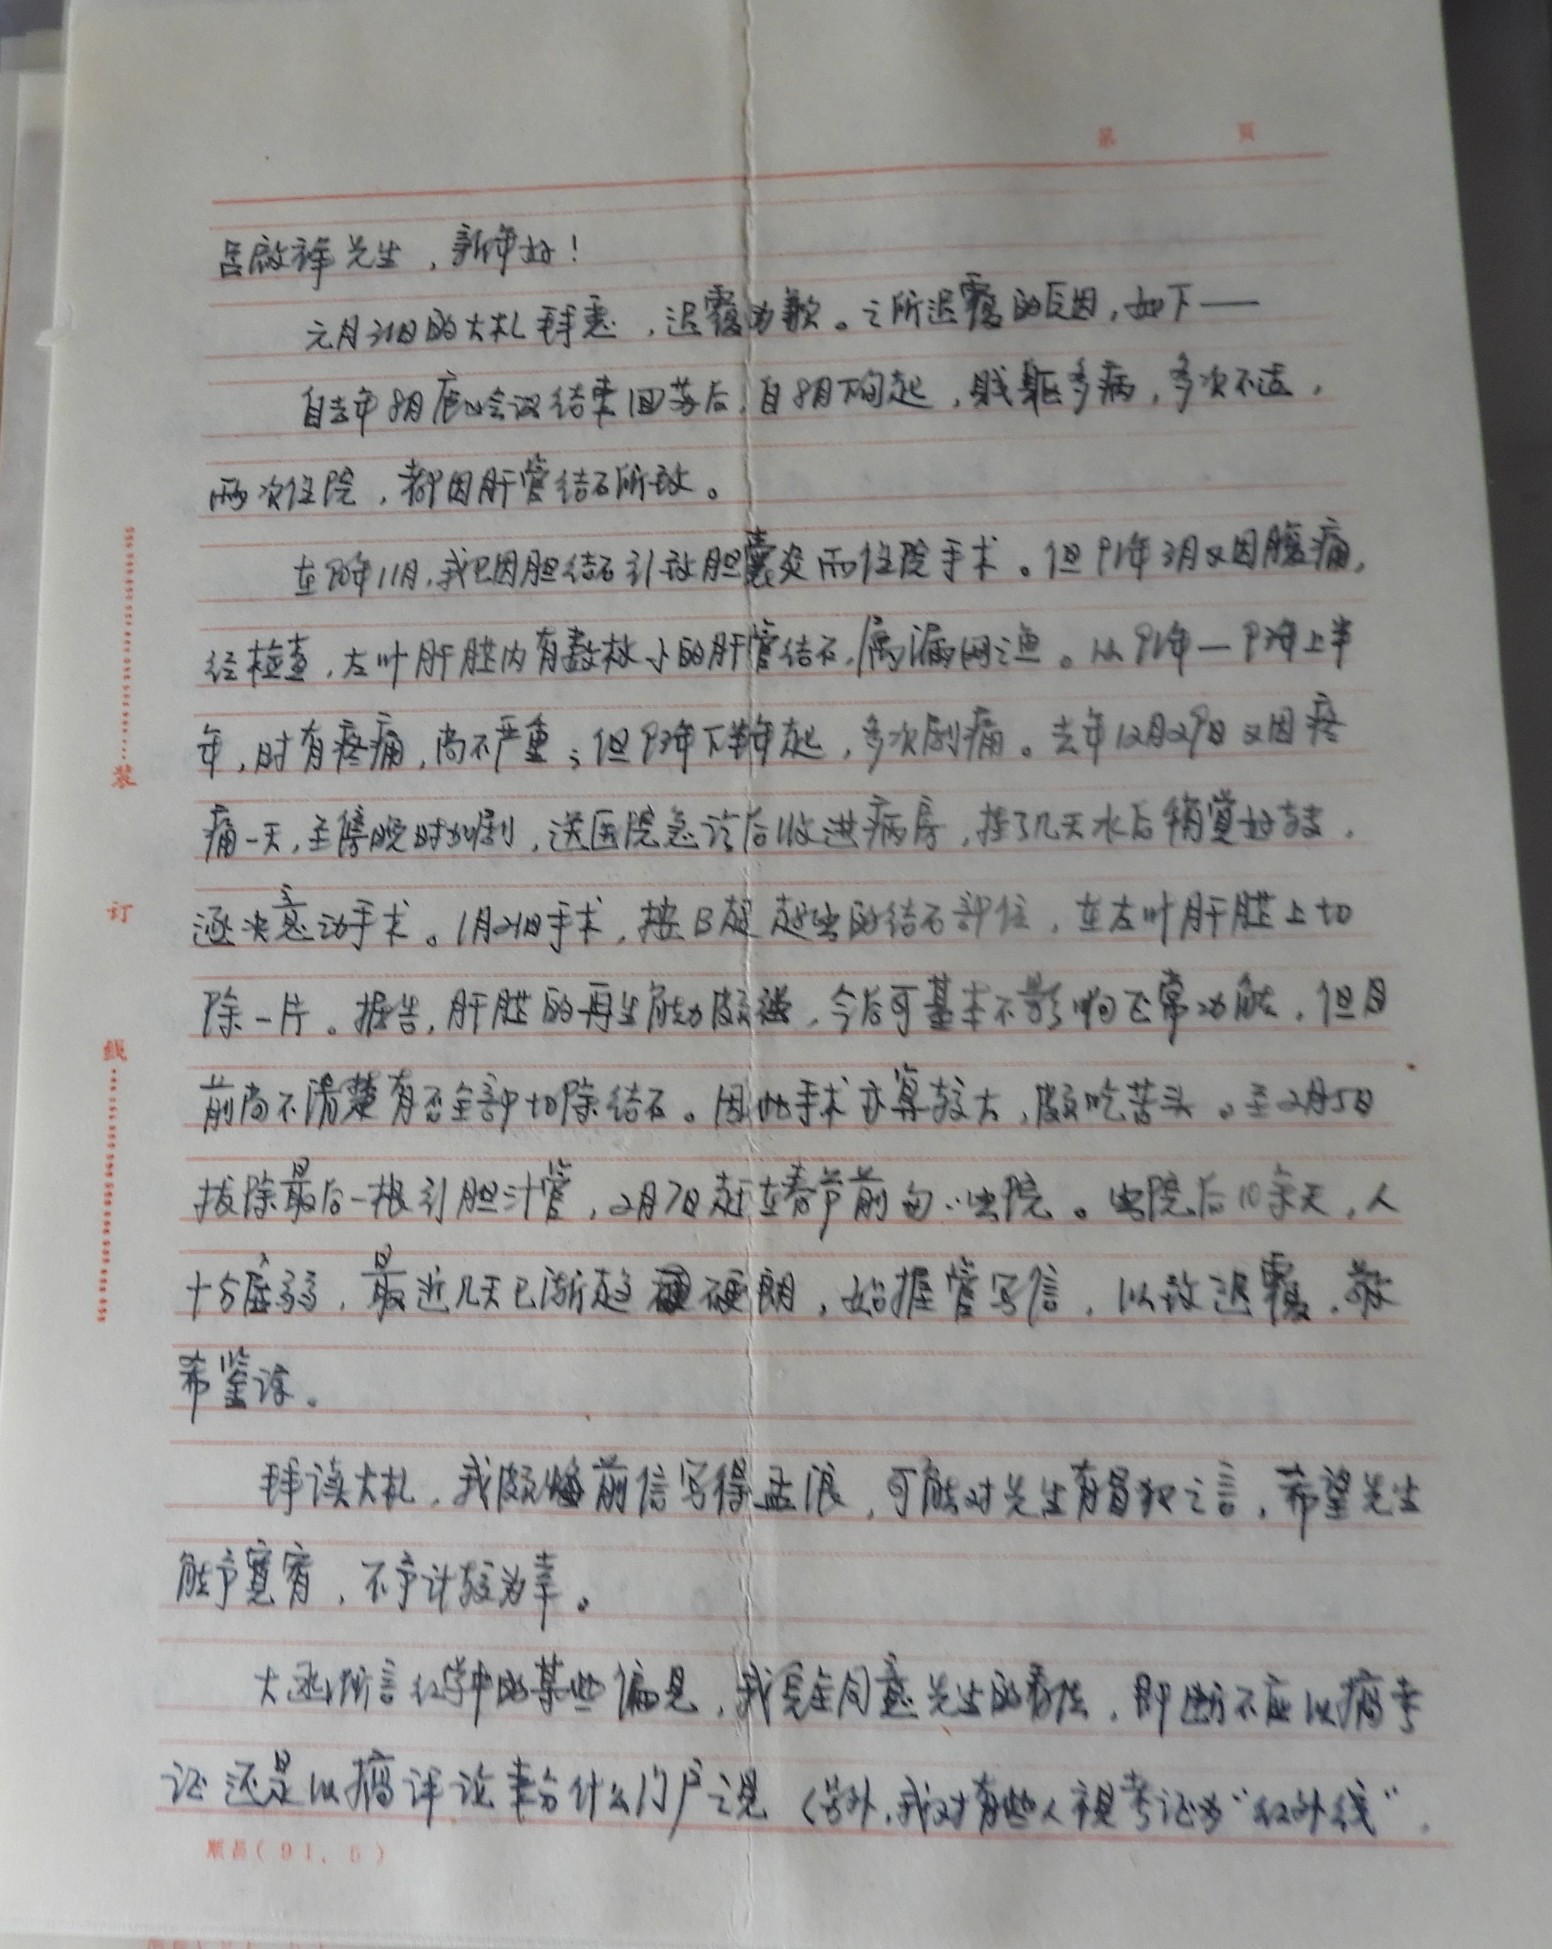 第 頁
吕启祥先生，新年好！
元月31日的大札拜悉，迟覆为歉。之所迟覆的原因，如下——
自去年8月底会议结束回苏后，自8月下旬起，贱躯多病，多次不适，
两次住院，都因肝管结石所致。
在90年11月，我已因胆结石引致胆囊炎而住院手术。但91年3月又因腹痛，
经检查，左叶肝脏内有数枚小的肝管结石，属漏网之鱼。从91年—93年上半
年，时有疼痛，尚不严重；但93年下半年起，多次剧痛。去年12月29日又因疼
痛一天，至傍晚时加剧，送医院急诊后收进病房，挂了几天水后稍觉好转，
遂决意动手术。1月21日手术，按B超超出的结石部位，在左叶肝脏上切
除一片。据告，肝脏的再生能力颇强，今后可基本不影响正常功能，但目
前尚不清楚有否全部切除结石。因此手术亦算较大，颇吃苦头。至2月5日
拔除最后一根引胆汁管，2月7日赶在春节前匆匆出院。出院后10余天，人
十分虚弱，最近几天已渐趋硬朗，始握管写信，以致迟覆，敬
希鉴谅。
拜读大札，我颇悔前信写得孟浪，可能对先生有冒犯之言，希望先生
能予宽宥，不予计较为幸。
大函所言红学中的某些偏见，我完全同意先生的看法，即断不应以搞考
证还是以搞评论来分什么门户之见（另外，我对有些人视考证为“红外线”，
装
订
线
顺昌(91.5)